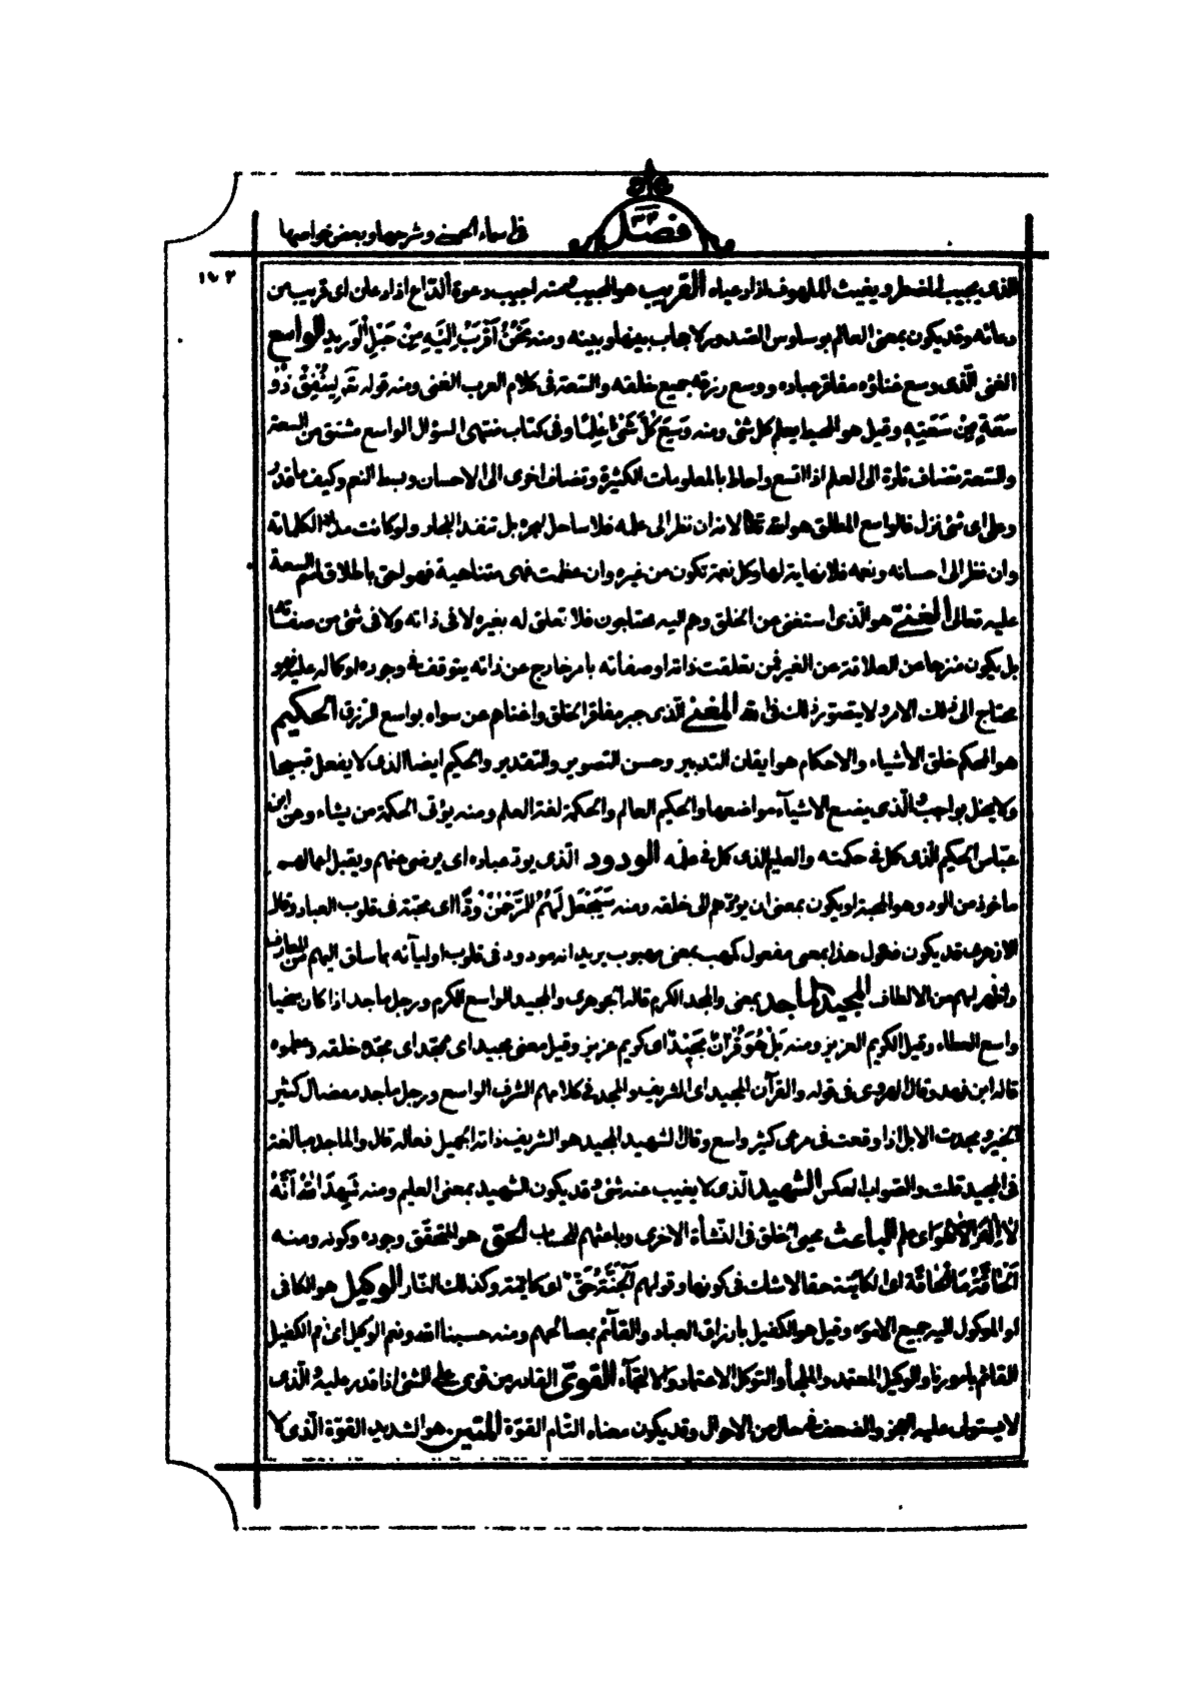 فصل ٣٢
في اسماء الحسنى وشرحها وبعض خواصها
الذى يجيب المضطر ويغيث الملهوف اذا دعياه القريب هو المجيب ومنه اجيب دعوة الداع اذا دعان اى قريب من
دعائه وقد يكون بمعنى العالم بوساوس الصدور لا حجاب بينها وبينه ومنه نَحْنُ أَقْرَبُ اِلَيْهِ مِنْ حَبْلِ الْوَرِيدِ الواسع
الغنى الّذى وسع غناؤه مفاقر عباده ووسع رزقه جميع خلقه والسّعة فى كلام العرب الغنى ومنه قوله تعالى لِيُنْفِقْ ذُو
سَعَةٍ مِنْ سَعَتِهِ وقيل هو المحيط بعلم كل شئ ومنه وَسِعَ كُلَّ شَىْءٍ عِلْمًا وفى كتاب منتهى السؤال الواسع مشتق من السعة
والسّعة تضاف تارة الى العلم اذا اتسع واحاط بالمعلومات الكثيرة وتضاف اخرى الى الاحسان وبسط النعم وكيف ما قدر
وعلى اى شئ نزل فالواسع المطلق هو الله تعالى لانه ان نظر الى علمه فلا ساحل لبحره بل تنفد البحار ولو كانت مدادا لكلماته
وان نظر الى احسانه ونعمه فلا نهاية لها وكل نعمة تكون من غيره وان عظمت فهى متناهية فهو احق باطلاق اسم السعة
عليه تعالى الغنىّ هو الّذى استغنى عن الخلق وهم اليه محتاجون فلا تعلق له بغيره لا فى ذاته ولا فى شئ من صفاته
بل يكون منزها عن العلاقة عن الغير فمن تعلقت ذاته او صفاته بامر خارج عن ذاته يتوقف فى وجوده او كماله عليه فهو
محتاج الى ذلك الامر ولا يتصور ذلك فى الله المغنى الّذى جبر مفاقر الخلق واغناهم عن سواه بواسع الرّزق الحكيم
هو المحكم خلق الأشياء والاحكام هو ايقان التدبير وحسن التصوير والتقدير والحكيم ايضا الذى لا يفعل قبيحا
ولا يخل بواجب والّذى يضع الاشيآء مواضعها والحكيم العالم والحكمة لغة العلم ومنه يؤتى الحكمة من يشاء وعن ابن
عبّاس الحكيم الّذى كمل فى حكمته والعليم الذى كمل فى علمه الودود الّذى يودّ عباده اى يرضى عنهم ويقبل اعمالهم
مأخوذ من الود وهو المحبة او يكون بمعنى ان يودّهم الى خلقه ومنه سَيَجْعَلُ لَهُمُ الرَّحْمٰنُ وُدًّا اى محبّة فى قلوب العباد وقال
الازهرى قد يكون فعول هذا بمعنى مفعول كمهيب بمعنى مهيوب يريد انه مودود فى قلوب اوليآئه بما ساق اليهم من المعارف
واظهر لهم من الالطاف المجيد الماجد بمعنى والمجد الكرم قاله الجوهرى والمجيد الواسع الكرم ورجل ماجد اذا كان سخيا
واسع العطاء وقيل الكريم العزيز ومنه بَلْ هُوَ قُرْآنٌ مَجِيدٌ اى كريم عزيز وقيل معنى مجيد اى ممجّد اى مجّده خلقه وعظموه
قاله ابن فهد وقال الهروى فى قوله والقرآن المجيد اى الشريف والمجد فى كلامهم الشرف الواسع ورجل ماجد مفضال كثير
الخير ومجدت الابل اذا وقعت فى مرعى كثير واسع وقال الشهيد المجيد هو الشريف ذاته الجميل فعاله قال والماجد مبالغة
فى المجيد قلت والصّواب العكس الشهيد الّذى لا يغيب عنه شئ وقد يكون الشهيد بمعنى العليم ومنه شَهِدَ اللهُ أَنَّهُ
لا اِلٰهَ اِلَّا هُوَ اى علم الباعث محيى الخلق فى النّشأة الاخرى وباعثهم للحساب الحق هو المتحقّق وجوده وكونه ومنه
اَلْحَاقَّةُ مَا الْحَاقَّة اى الكآئنة حقا لا شك فى كونها وقولهم اَلْجَنَّةُ حَقّ اى كائنة وكذلك النّار الوكيل هو الكافى
او الموكول اليه جميع الامور وقيل هو الكفيل بارزاق العباد والقآئم بمصالحهم ومنه حسبنا الله ونعم الوكيل اى نعم الكفيل
القائم بامورنا والوكيل المعتمد والملجأ والتوكل الاعتماد والالتجآء القوىّ القادر من قوى على الشئ اذا قدر عليه او الّذى
لا يستولى عليه العجز والضعف فى حال من الاحوال وقد يكون معناه التّام القوّة المتين هو الشديد القوّة الّذى لا